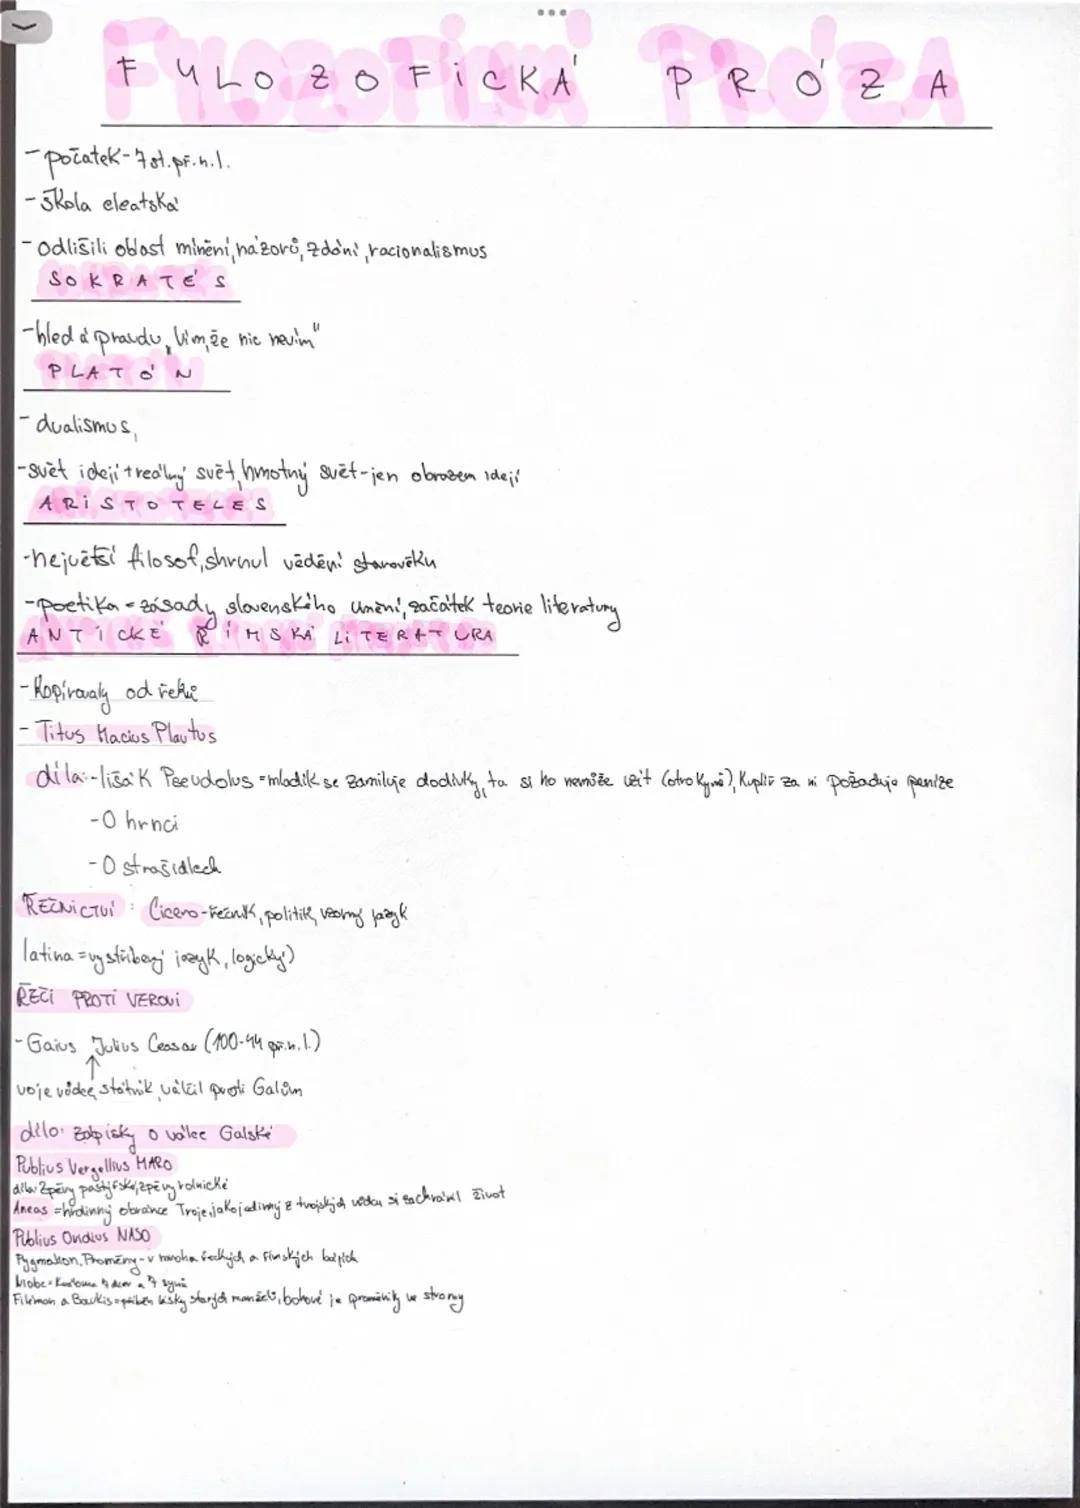 FYLOZOFiCKÁ PRÓZA
-počatek-7st.př.n.l.
-škola eleatská
-odlišili oblast mínění, názorů, zdání, racionalismus
SOKRATÉS
-hledá pravdu „Vím, že nic nevím"
PLATÓN
-dualismus,
-svět idejí+reálný svět, hmotný svět-jen obrazem idejí
ARiSTOTELES
-největší filosof, shrnul vědění starověku
-poetika=zásady slovenského umění, začátek teorie literatury
ANTiCKÉ ŘíMSKÁ LiTERATURA
-Kopírovaly od řeků
-Titus Macius Plautus
díla:-lišák Pseudolus=mladík se zamiluje do dívky, ta si ho nemůže vzít (otrokyně), Kuplíř za ni požaduje peníze
-O hrnci
-O strašidlech
ŘEČNiCTVí: Cicero-řečník, politik, vzorný jazyk
latina=vystříbený jazyk, logický)
ŘEČi PROTi VEROVi
-Gaius Julius Ceasar (100-44 př.n.l.)
voje vůdce, státník, válčil proti Galům
dílo: zápisky o válce Galské
Publius Vergellius MARO
díla: Zpěvy pastýřské, zpěvy rolnické
Aneas=hrdinný obránce Troje, jako jediný z trojských vůdců si zachránil život
Publius Ovidius NASO
Pygmalion, Proměny-v mnoha řeckých a římských bájích
Niobe= 7 dcer a 7 synů
Filémon a Baukis=příběh lásky starých manželů, bohové je proměnily ve stromy